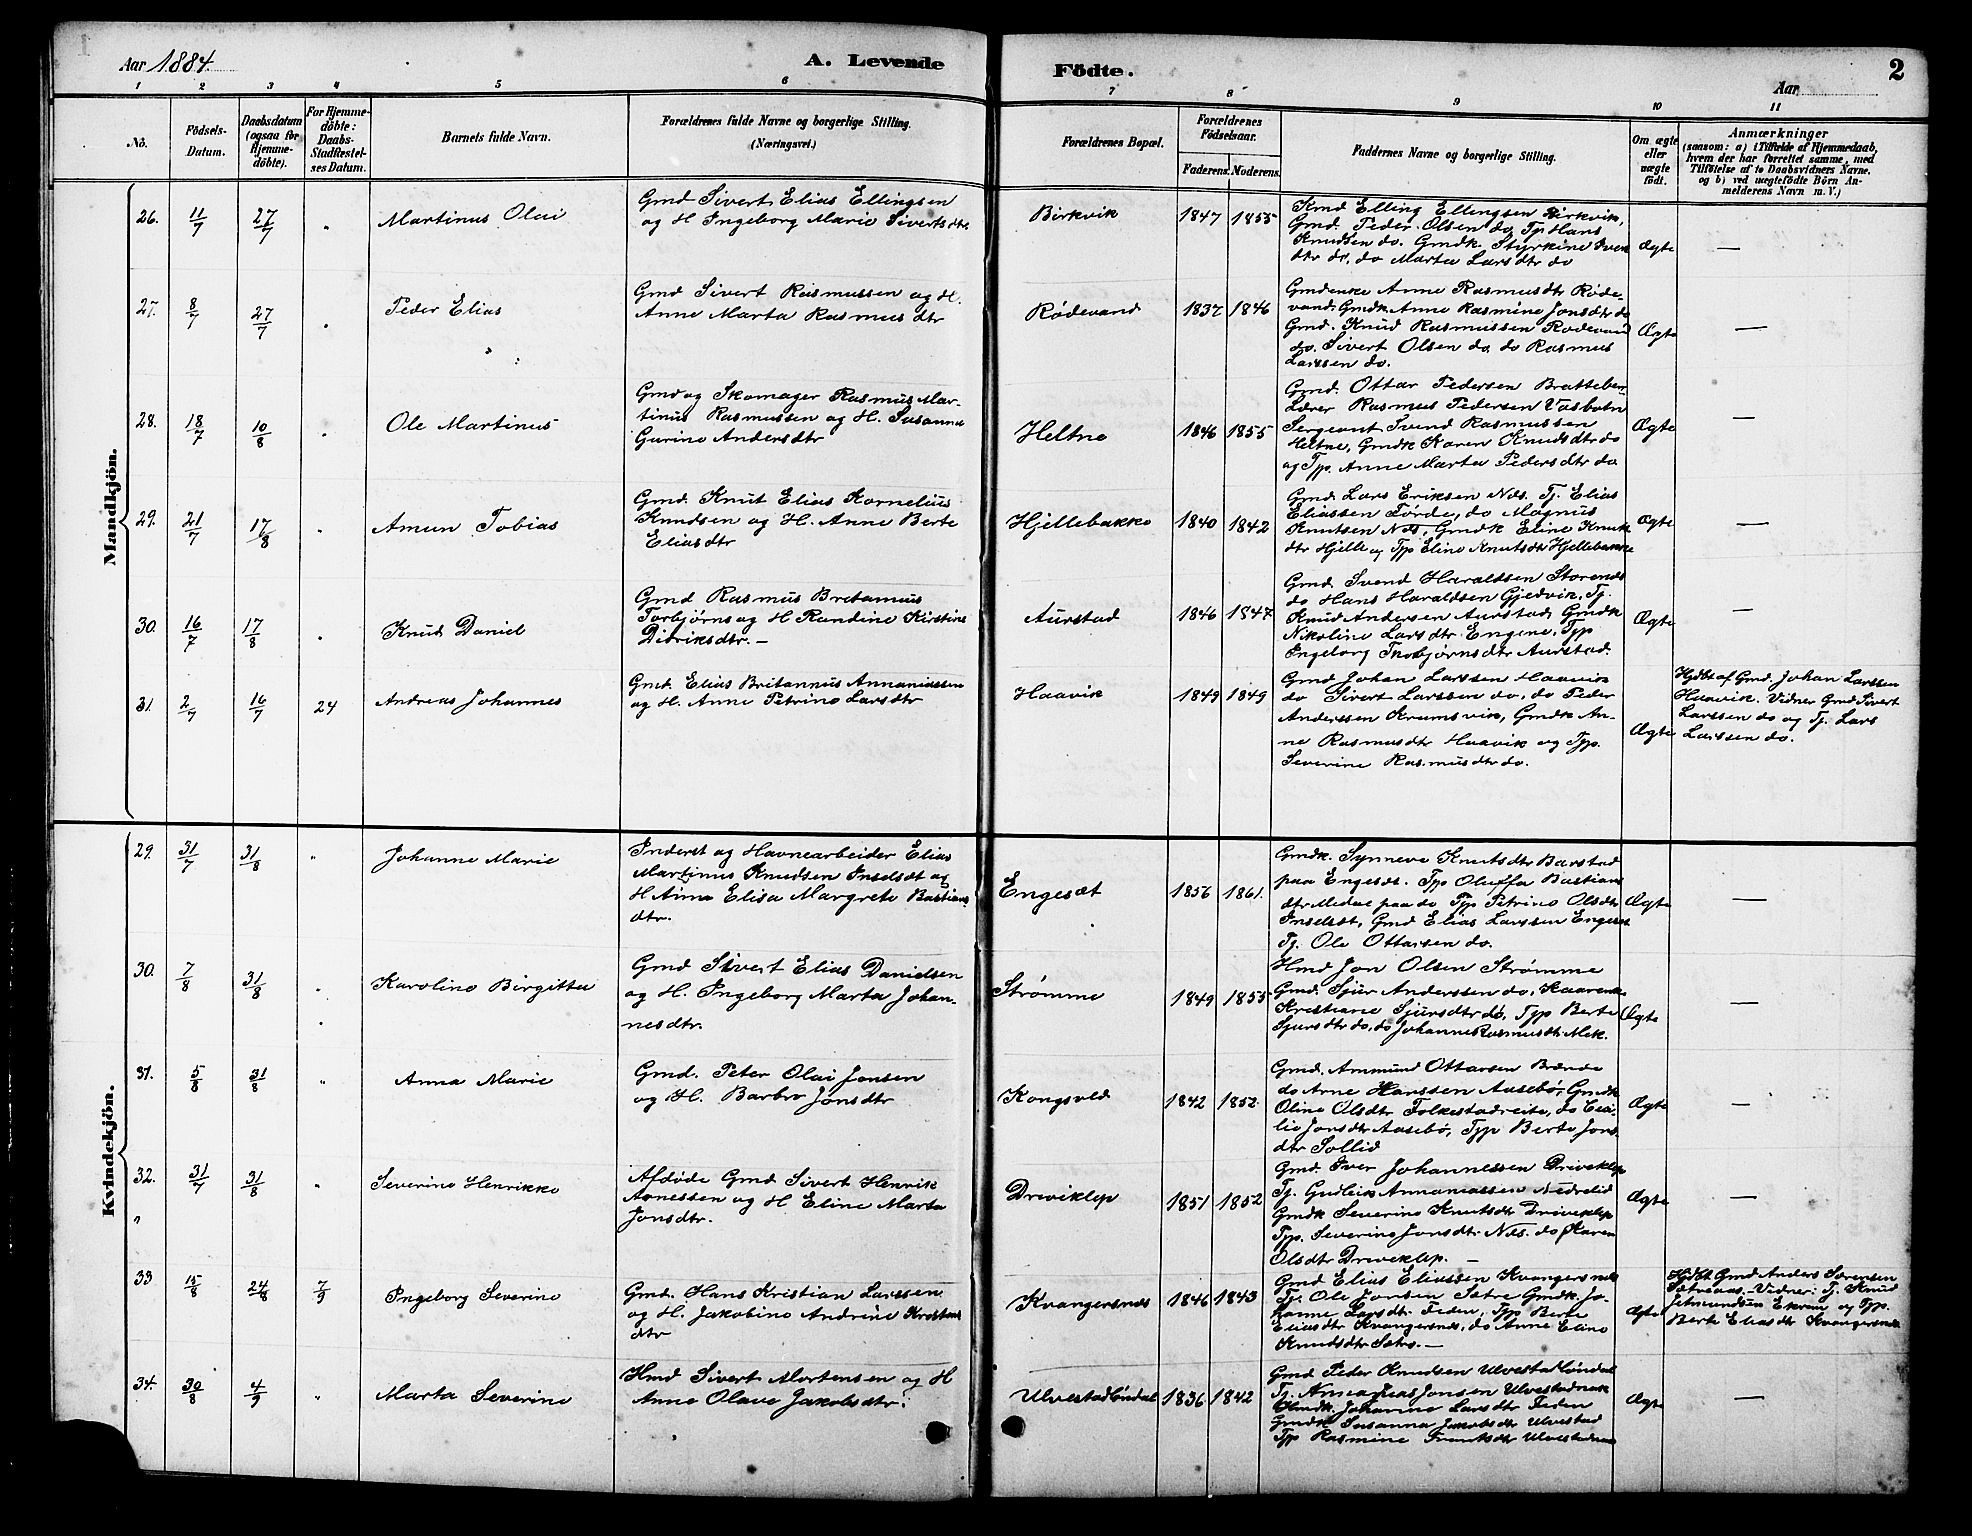 Aar 1884.
A. Levende
Födte.
Aar
2
1 2 3 4 5 6 7 8 9 10 11
No.
Födsels-Datum.
Daabsdatum (ogsaa for Hjemmedöbte).
For Hjemmedöbte: Daabs-Stadfæstelses Datum.
Barnets fulde Navn.
Forældrenes fulde Navne og borgerlige Stilling. (Næringsvei.)
Forældrenes Bopæl.
Forældrenes Födselsaar.
Faderens. Moderens.
Faddernes Navne og borgerlige Stilling.
Om ægte eller uægte födt.
Anmærkninger
(saasom: a) i Tilfælde af Hjemmedaab, hvem der har forrettet samme, med Tilföielse af to Daabsvidners Navne, og b) ved uægtefödte Börn Anmelderens Navn m. V.)
Mandkjön.
26. 11/7 27/7 " Martinus Olai
Gmd Sivert Elias Ellingsen
og H. Ingeborg Marie Sivertsdtr.
Birkvik 1847 1855
Gmd. Peder Olsen do, Tj. Hans
Knudsen do. Gmdk. Styrkine
dtr do, do Marta Larsdtr do
Ægte —
27. 8/7 27/7 " Peder Elias
Gmd Sivert Rasmussen og H.
Anne Marta Rasmusdtr
Rødevand 1837 1846
Gmdenke Anne Rasmusdtr Røde-
vand. Gmdk Anne Rasmine Jonsdtr do
Gmd. Knud Rasmussen Rødevand
do. Sivert Olsen do, do Rasmus
Larssen do.
Ægte —
28. 18/7 10/8 " Ole Martinus
Gmd og Skomager Rasmus Mar-
tinus Rasmussen og H. Susanna
Gurine Andersdtr
Heltne 1846 1855
Gmd. Ottar Pedersen Bratteber-
Lærer Rasmus Pedersen Vasbotn
Sergeant Svend Rasmussen
Heltne, Gmdk Karen Knudsdtr do
og Tjp. Anne Marta Pedersdtr do
Ægte —
29. 21/7 17/8 " Amun Tobias
Gmd. Knut Elias Kornelius
Knudsen og H. Anne Berte
Eliasdtr
Hjellebakke 1840 1842
Gmd Lars Eriksen Nds. Tj. Elias
Eliassen Førde, do Magnus
Knutsen Nds, Gmdk Eline Knuts
dtr Hjelle og Tjp Eline Knutsdtr Hjellebakke
Ægte —
30. 16/7 17/8 " Knud Daniel
Gmd Rasmus Britannus
Torbjørns og H Randine Kirstine
Didriksdtr. —
Aurstad 1846 1847
Gmd. Svend Haraldsen Storends
do Hans Haraldsen Gjedvik, Tj.
Knud Andersen Aurstad, Gmdk
Nikoline Larsdtr Engene, Tjp
Ingeborg Thorbjørnsdtr Aurstad.
Ægte —
31. 2/7 16/7 24 Andreas Johannes
Gmd. Elias Britannus Annaniassen
og H. Anne Petrine Larsdtr
Haavik 1849 1849
Gmd Johan Larssen Haavik
do Sivert Larssen do, do Peder
Anderssen Krumsvik, Gmdk An-
ne Rasmusdtr Haavik og Tjp.
Severine Rasmusdtr do.
Ægte
Hjdbt af Gmd. Johan Larssen
Haavik. Vidner Gmd Sivert
Larssen do og Tj. Lars
Larssen do.
Kvindekjön.
29. 31/7 31/8 " Johanne Marie
Inderst og Havnearbeider Elias
Martinus Knudsen Inselsdt og
H Anna Elisa Margrete Bastians-
dtr.
Engesæt 1856 1861.
Gmdk. Synneve Knutsdtr Barstad
paa Engesdt. Tjp Oluffa Bastians
dtr Medal paa do Tjp Petrine Olsdtr
Inselsdt, Gmd Elias Larssen Engeset
Tj. Ole Ottarsen do.
Ægte —
30. 7/8 31/8 " Karoline Birgitta
Gmd Sivert Elias Danielsen
og H. Ingeborg Marta Johan-
nesdtr.
Strømme 1849 1855
Hmd Jon Olsen Strømme
Gmd. Sjur Anderssen do,
Kristiane Sjursdtr do, Tjp Berte
Sjursdtr do, do Johanne Rasmusdtr Mek.
Ægte —
31. 5/8 31/8 " Anna Marie
Gmd. Peter Olai Jonsen
og H. Barbro Jonsdtr
Kongsvld 1842 1852
Gmd. Ammund Ottarsen
do Arne Hanssen Aasebø, Gmdk
Oline Olsdtr Folkestadreite, do
lie Jonsdtr Aasebø, Tjp Berte Jons
dtr Sollid
Ægte —
32. 31/7 31/8 " Severine Henrikke
Afdøde Gmd Sivert Henrik
Aanessen og H Eline Marta
Jonsdtr.
Driveklep 1851 1852
Gmd. Iver Johannessen Driveklep
Tj. Gudleik Annaniassen Nedrelid
Gmdk Severine Knutsdtr Driveklep
Tjp. Severine Jonsdtr Nds. do Karen
Olsdtr Driveklep. —
Ægte —
33 15/8 24/8 7/9 Ingeborg Severine
Gmd. Hans Kristian Larssen
og H. Jakobine Andrine
dtr
Kvangersnes 1846 1843
Gmd Elias Eliassen Kvangersnes
Tj. Ole Jonsen Sætre Gmdk. Jo-
hanne Larsdtr Feden, Tjp Berte
Eliasdtr Kvangersnes, do Anne Eline
Knutsdtr Sætre. —
Ægte
Hjdbt Gmd Anders Sørensen
Vidner: Tj. Knud
Jetmundsen Ekrem og Tjp.
Berte Eliasdtr Kvangersnes
34. 30/8 4/9 " Marta Severine
Hmd Sivert Mortensen og H
Anne Olave Jakobsdtr.
Ulvestadløndal 1836 1842
Gmd Peder Knudsen Ulvestadløndal
Tj. Ananias Jonsen Ulvestadnak
Gmdk. Johanne Larsdtr Feden
Gmdk Susanna Jakobsdtr Ulvestad
Tjp Rasmine
Ægte —